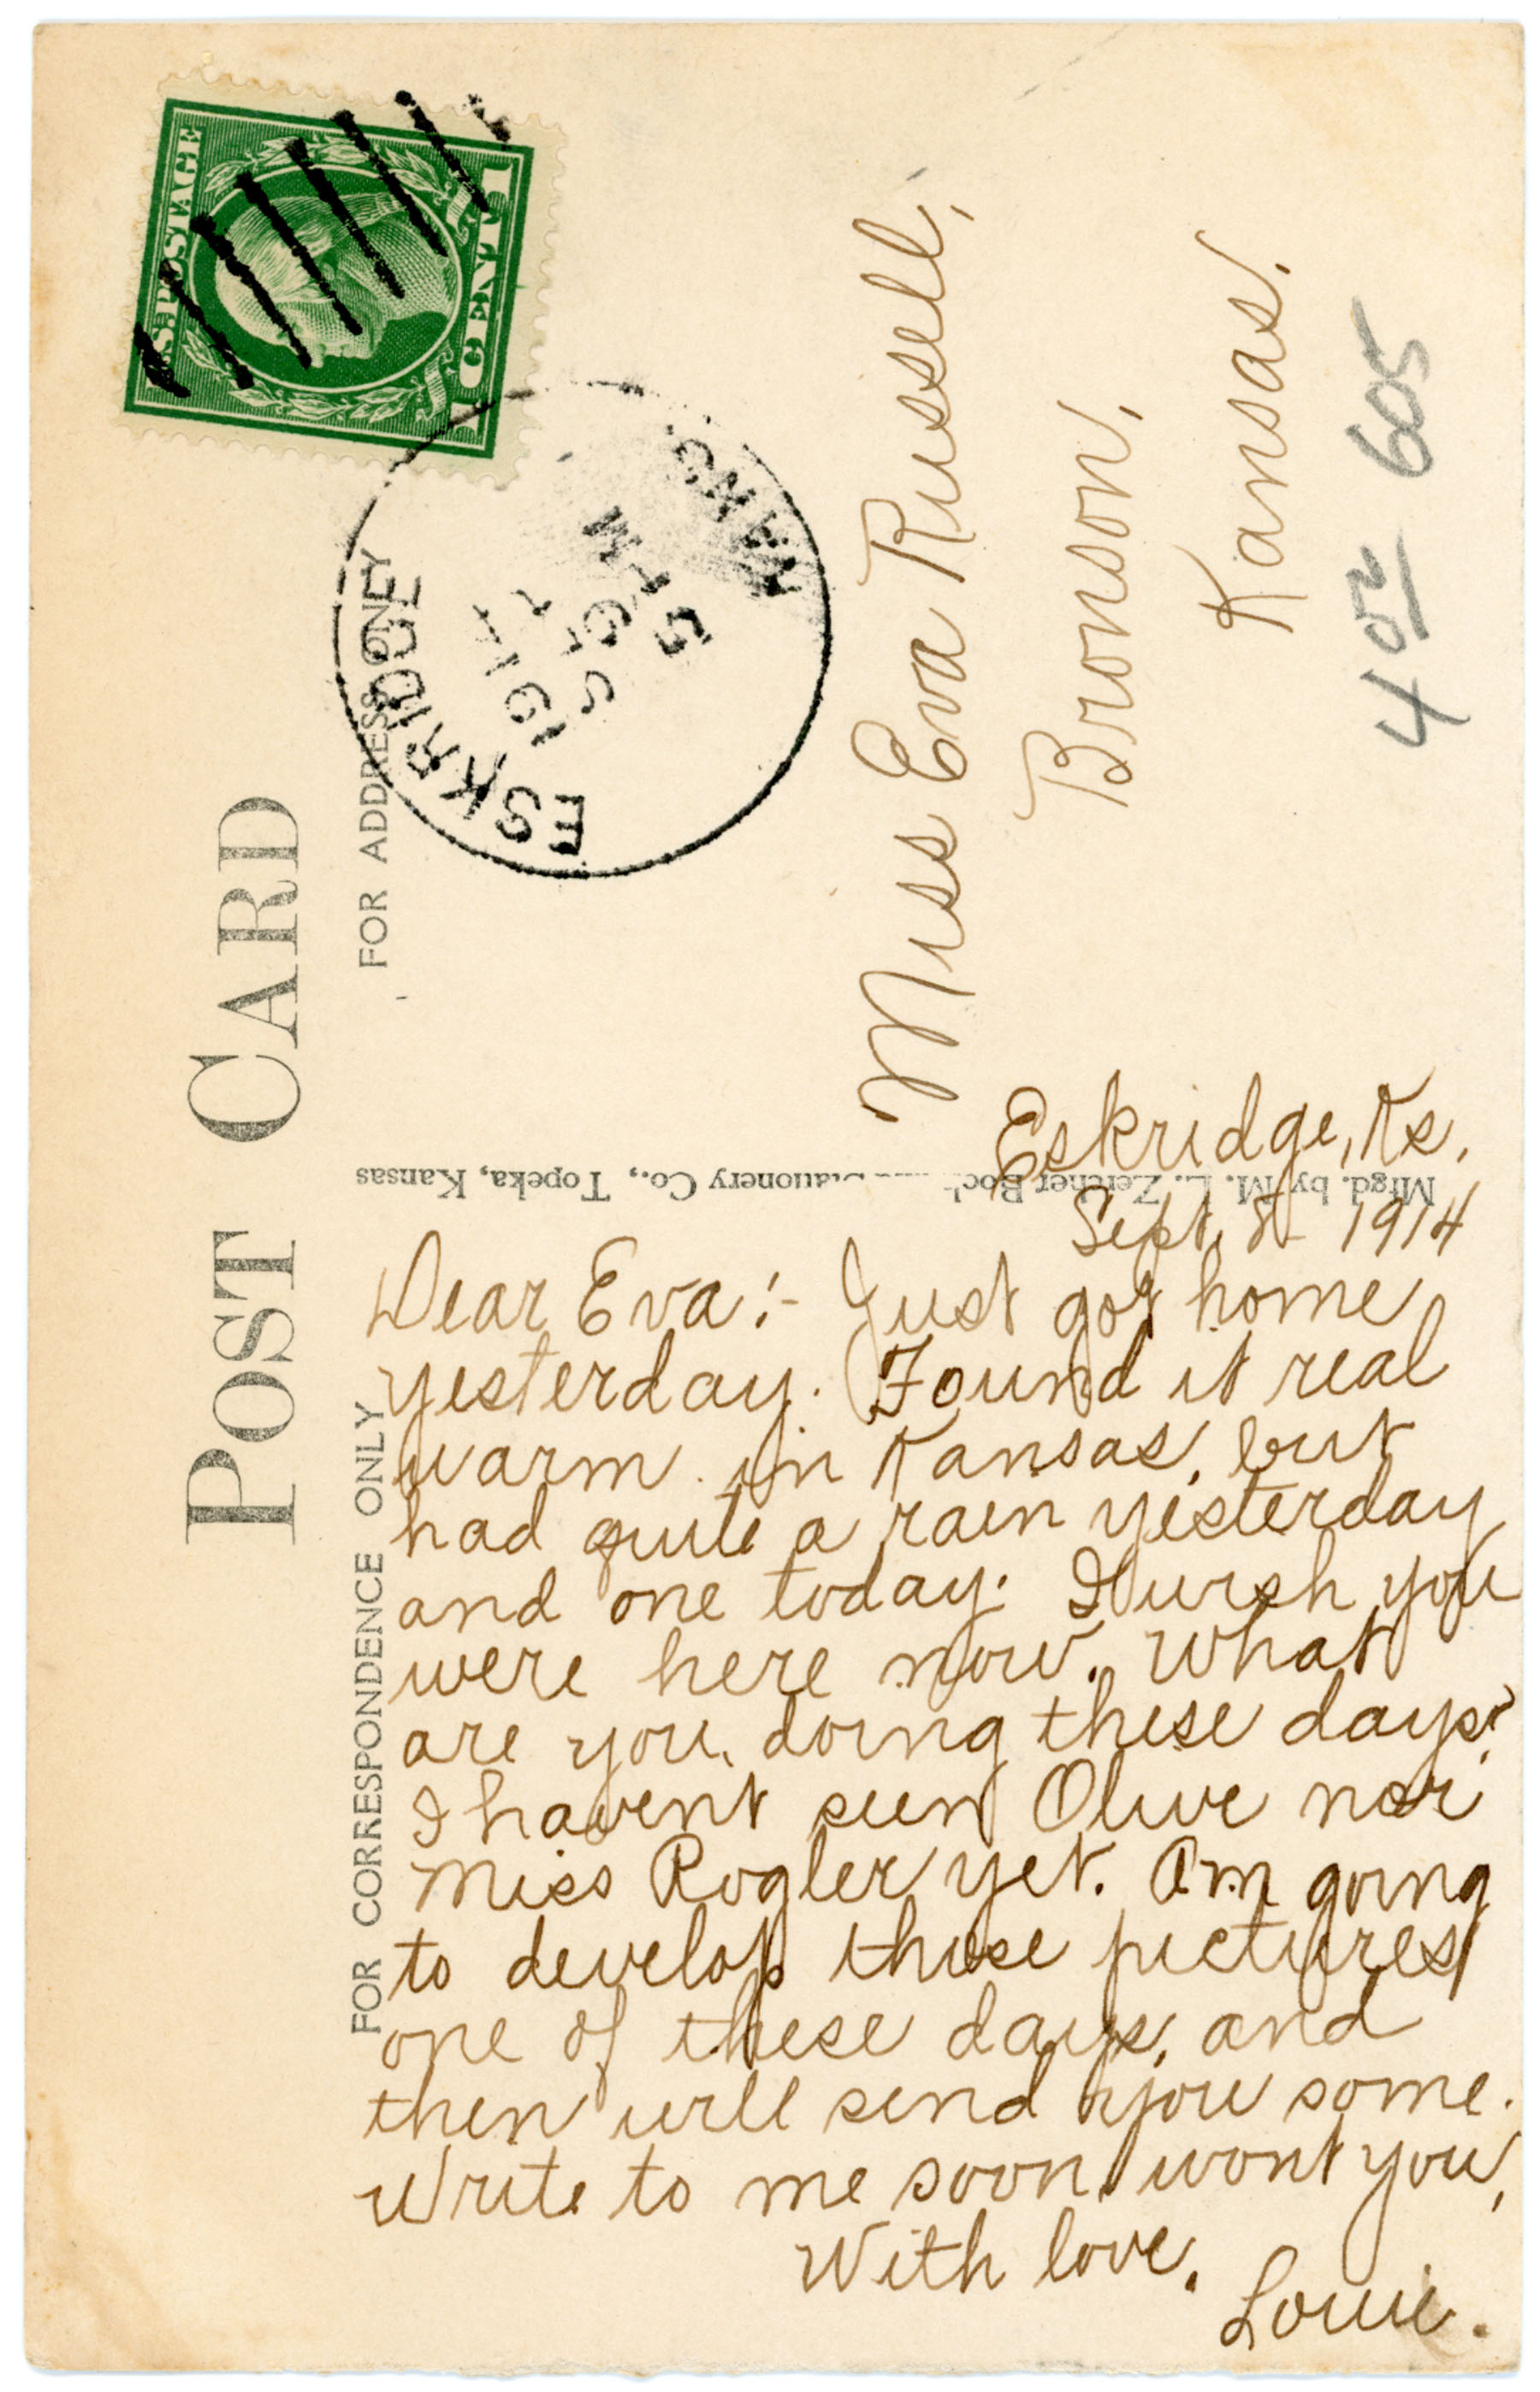 POST CARD
FOR ADDRESS ONLY
U.S. POSTAGE
1 CENT 1
ESKRIDGE
KANS.
SEP 9
5 PM
1914
Miss Eva Russell,
Bronson,
Kansas.
4 605
Mfgd. by M. L. Zercher Book Stationery Co., Topeka, Kansas
FOR CORRESPONDENCE ONLY
Eskridge, Ks.
Sept. 8 - 1914
Dear Eva:- Just got home
yesterday. Found it real
warm in Kansas, but
had quite a rain yesterday
and one today. I wish you
were here now. What
are you doing these days?
I havent seen Olive nor
Miss Rogler yet. Am going
to develop those pictures
one of these days, and
then will send you some.
Write to me soon, wont you,
With love.
Louie.